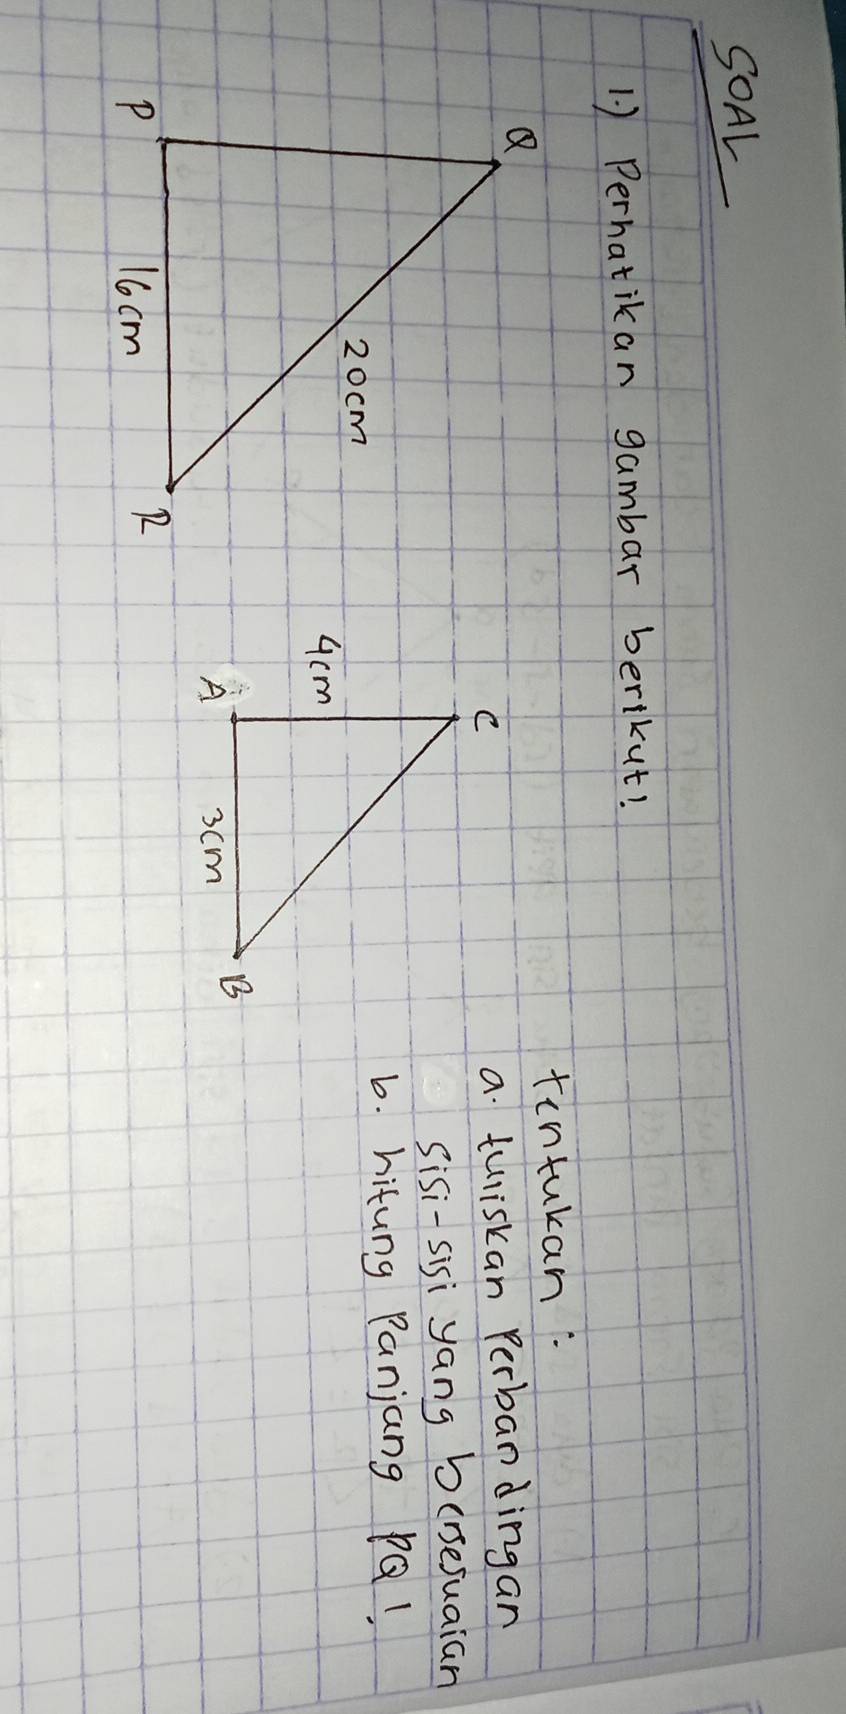 SOAL
1.) Perhatikan gambar berikut!
Q
20cm
P
16cm
R
C
4cm
A
3cm
B
tentukan :
a. tuliskan Perbandingan
sisi-sisi yang bersesuaian
b. hitung Panjang PQ!